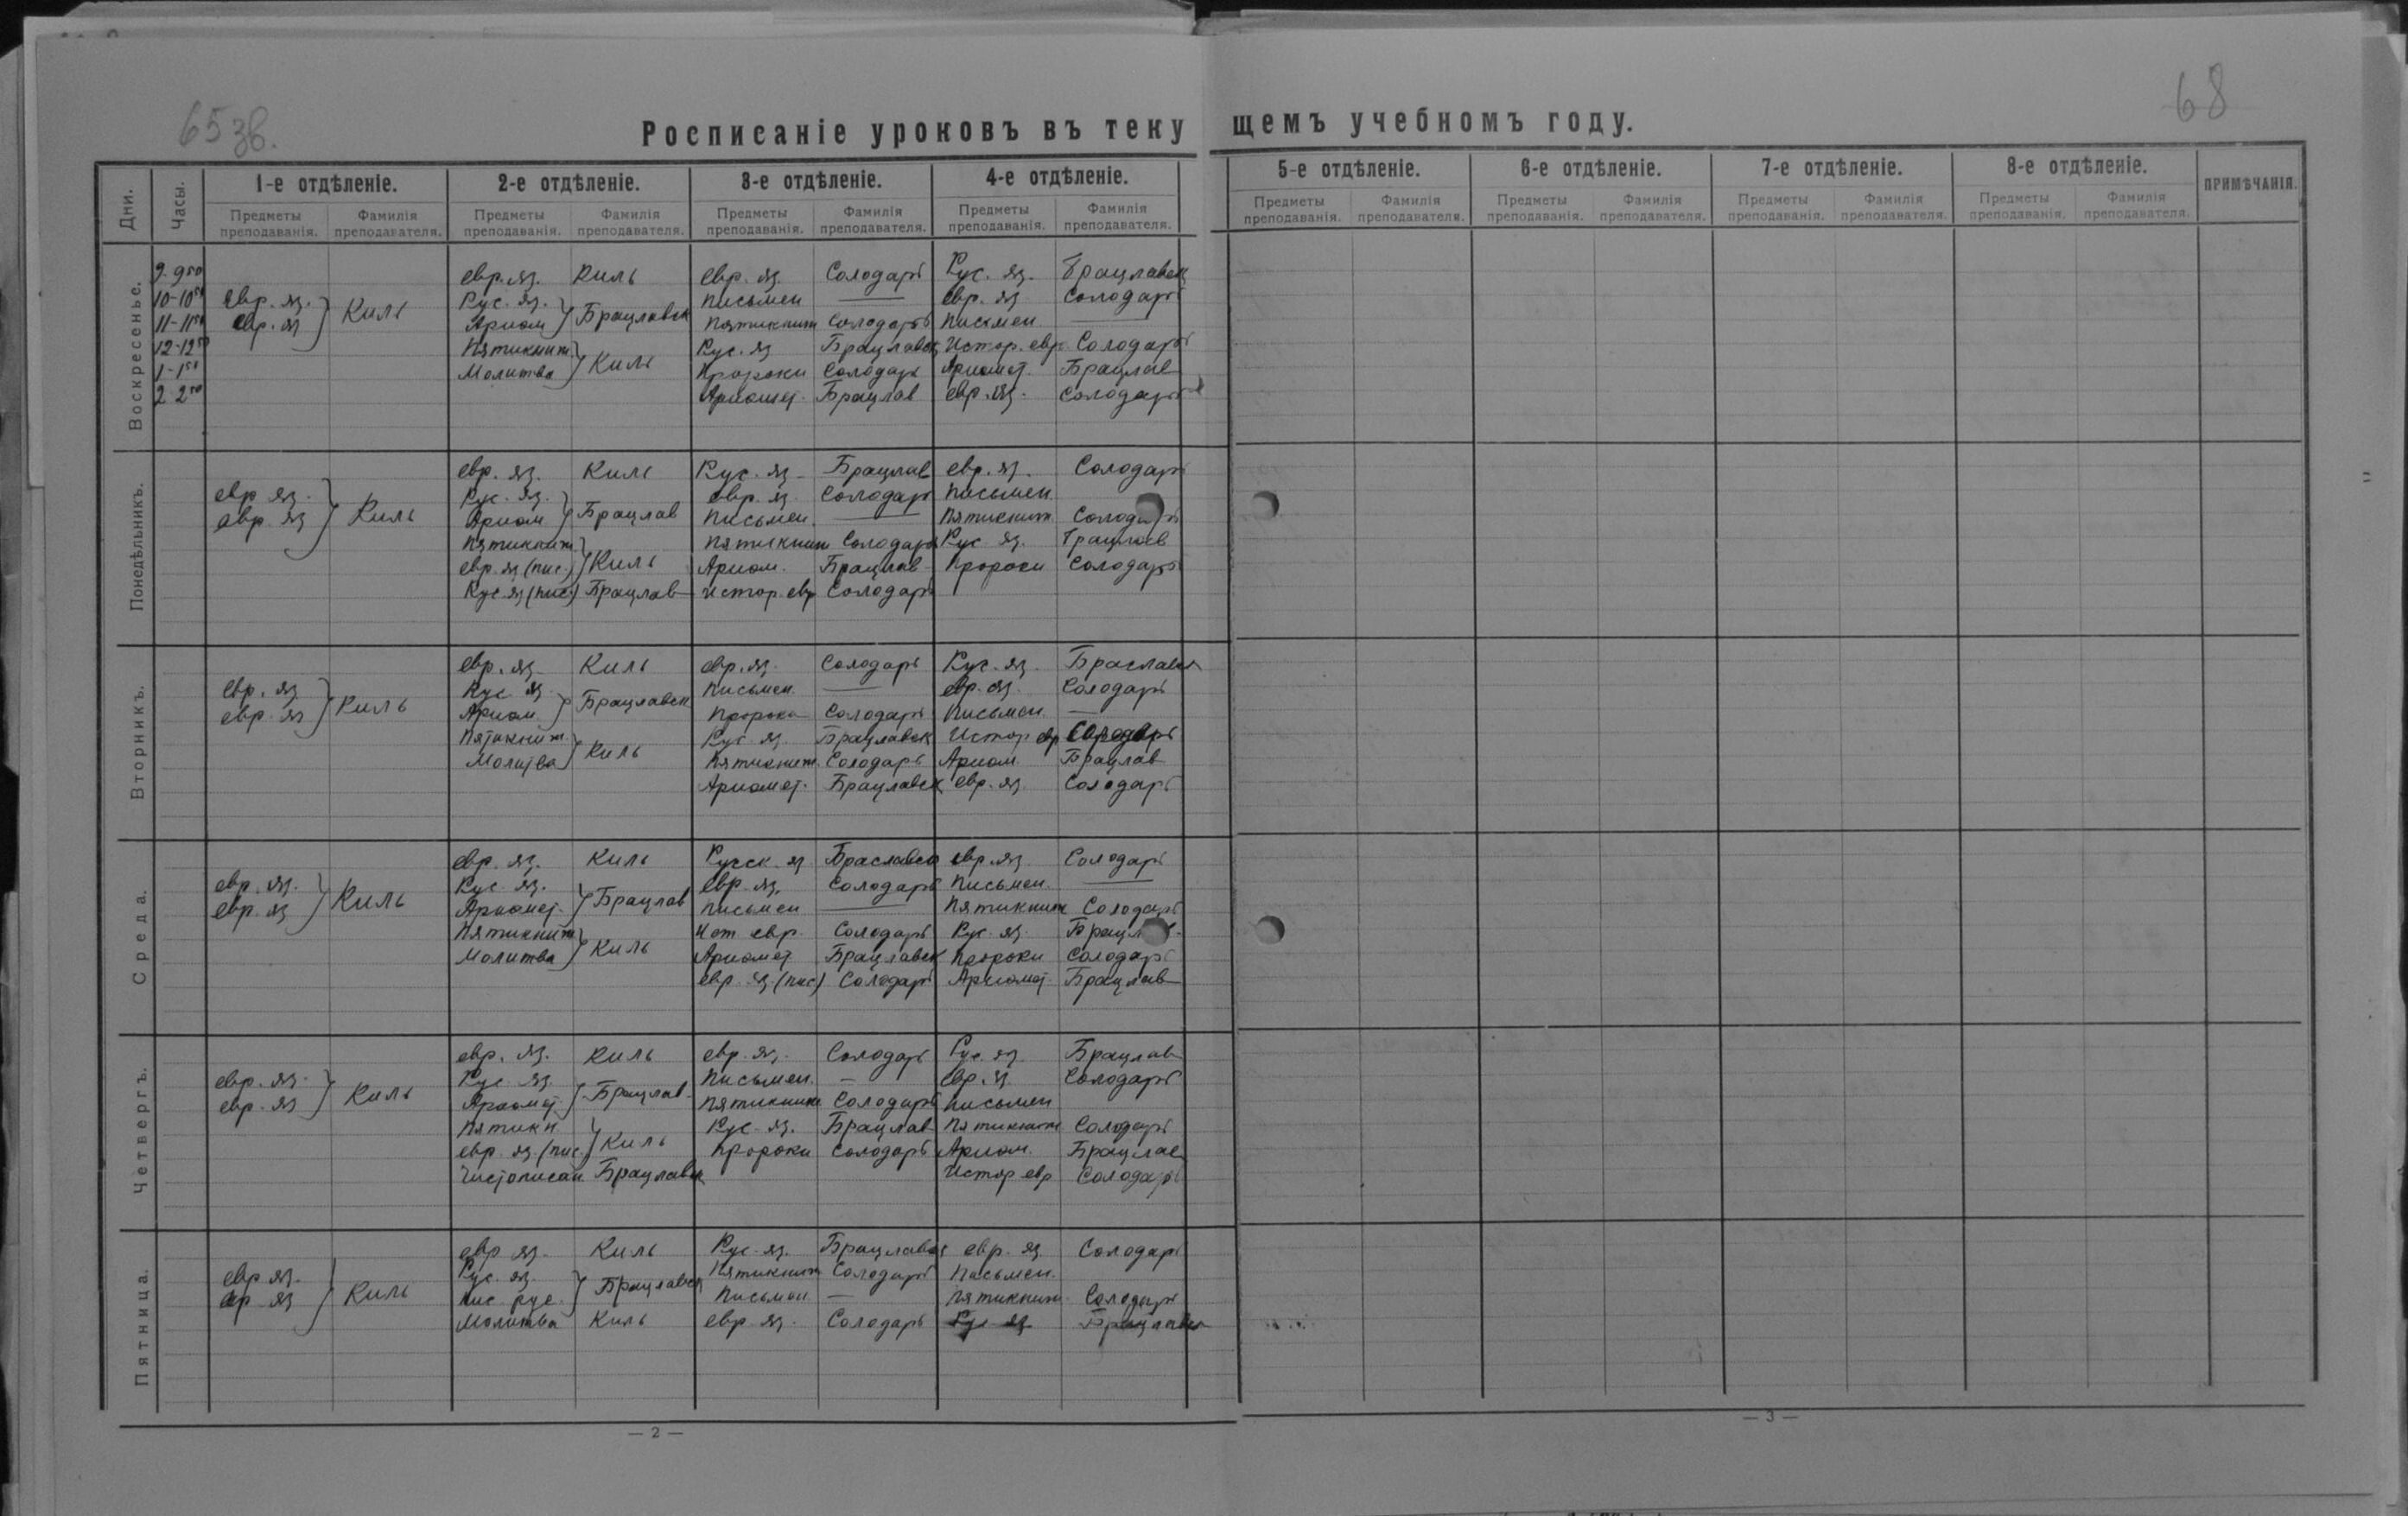 65 зв.
68
Росписаніе уроковъ въ текущемъ учебномъ году.
Дни. Часы. 1-е отдѣленіе. 2-е отдѣленіе. 3-е отдѣленіе. 4-е отдѣленіе. 5-е отдѣленіе. 6-е отдѣленіе. 7-е отдѣленіе. 8-е отдѣленіе. ПРИМѢЧАНІЯ.
Предметы преподаванія. Фамилія преподавателя. Предметы преподаванія. Фамилія преподавателя. Предметы преподаванія. Фамилія преподавателя. Предметы преподаванія. Фамилія преподавателя. Предметы преподаванія. Фамилія преподавателя. Предметы преподаванія. Фамилія преподавателя. Предметы преподаванія. Фамилія преподавателя. Предметы преподаванія. Фамилія преподавателя.
Воскресенье.
9-9 50 евр. яз. Киль евр. яз. Солодарь Рус. яз. Брацлавск
10-10 50 евр. яз. Киль Рус. яз. Брацлавск письмен — евр. яз Солодарь
11-11 50 евр. яз Ариѳм Пятикниж Солодарь письмен —
12-12 50 Пятикниж. Киль Рус. яз Брацлавск Истор. евр Солодарь
1-1 50 Молитва Пророки Солодарь Ариѳмет. Брацлав
2 2 50 Ариѳмет. Брацлав евр. яз. Солодарь
Понедѣльникъ.
евр. яз. Киль Рус. яз Брацлав евр. яз. Солодарь
евр яз. Киль Рус. яз. Брацлав евр. яз. Солодарь письмен
евр. яз Ариѳм письмен. — пятикниж Солодарь
пятикниж. Киль пятикниж Солодарь Рус яз. Брацлав
евр. яз (пис.) Ариѳм. Брацлав Пророки Солодарь
Рус яз (пис.) Брацлав истор. евр Солодарь
Вторникъ.
евр. яз Киль евр. яз. Солодарь Рус. яз. Браславск
евр. яз Киль Рус яз Брацлавск письмен. — евр. яз. Солодарь
евр. яз Ариѳм пророки Солодарь письмен. —
Пятикниж. Киль Рус. яз. Брацлавск Истор евр Солодарь
Молитва пятикниж. Солодарь Ариѳм. Брацлав
Ариѳмет. Брацлавск евр. яз. Солодарь
Среда.
евр. яз. Киль Русск. яз Браславск евр. яз. Солодарь
евр. яз. Киль Рус. яз. Брацлав евр. яз. Солодарь письмен. —
евр. яз Ариѳмет. письмен — пятикниж Солодарь
Пятикниж Киль Ист. евр. Солодарь Рус. яз.
Молитва Ариѳмет Брацлавск Пророки Солодарь
евр. яз. (пис) Солодарь Ариѳмет. Брацлав
Четвергъ.
евр. яз. Киль евр. яз. Солодарь Рус. яз. Брацлав
евр. яз. Киль Рус. яз. Брацлав письмен. — евр. яз. Солодарь
евр. яз Ариѳмет. пятикниж Солодарь письмен
пятикн Киль Рус. яз. Брацлав пятикниж Солодарь
евр. яз. (пис.) пророки Солодарь Ариѳм. Брацлав
Чистописан. Брацлавск Истор евр Солодарь
Пятница.
евр яз. Киль Рус. яз. Брацлавск евр. яз. Солодарь
евр. яз. Киль Рус. яз. Брацлавск пятикниж Солодарь письмен.
евр яз пис. рус. письмен — пятикниж Солодарь
Молитва Киль евр яз. Солодарь Рус яз. Брацлавск
— 2 —
— 3 —